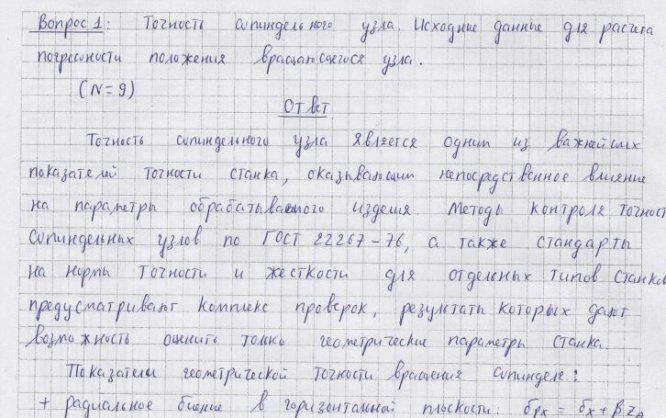 Вопрос 1: Точность шпиндельного узла. Исходные данные для расчета
погрешности положения вращающегося узла.
(N=9)
Ответ
Точность шпиндельного узла является одним из важнейших
показателей точности станка, оказывающим непосредственное влияние
на параметры обрабатываемого изделия. Методы контроля точност
шпиндельных узлов по ГОСТ 22267-76, а также стандарты
на нормы точности и жесткости для отдельных типов станков
предусматривают комплекс проверок, результаты которых дают
возможность оценить только геометрические параметры станка.
Показатели геометрической точности вращения шпинделе:
+ радиальное биение в горизонтальной плоскости: δpx = δx + β·zA